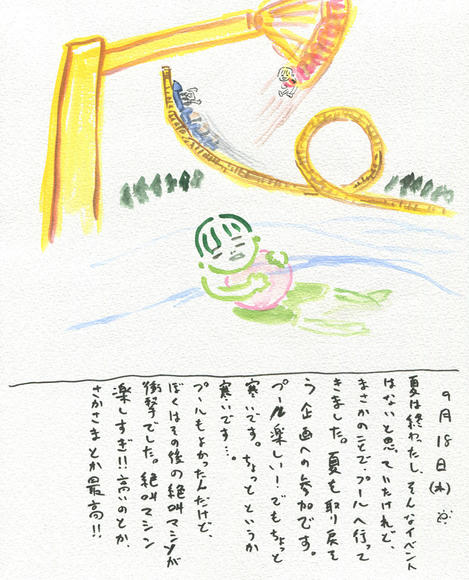 9月18日(水)
夏は終わったし、そんなイベント
はないと思っていたけれど、
まさかのことで、プールへ行って
きました。夏を取り戻そ
う企画への参加です。
プール楽しい!でもちょっと
寒いです。ちょっとというか
寒いです…。
プールもよかったんだけど、
ぼくはその後の絶叫マシンが
衝撃でした。絶叫マシン
楽しすぎ!!高いのとか、
さかさまとか最高!!